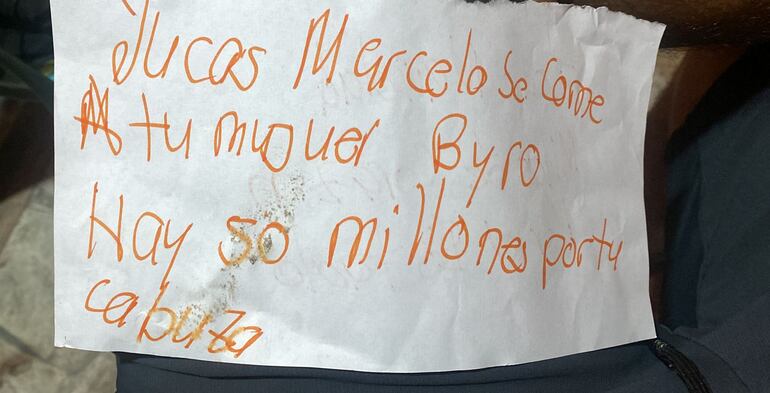 Jucas Marcelo se come
tu muguer Byro
Hay 50 millones por tu
cabuza